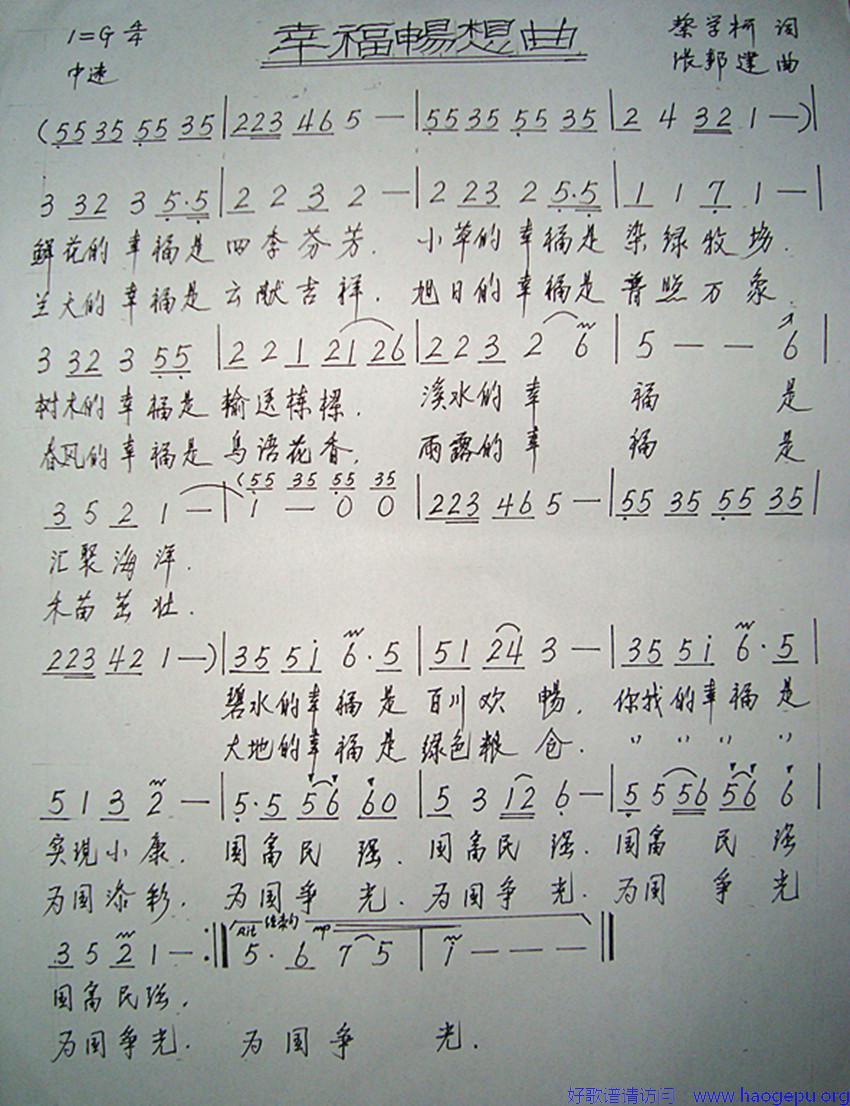 幸福暢想曲
1=G 4/4
中速
蔡学柯 词
张邦建 曲
(55 35 55 35 | 223 46 5 — | 55 35 55 35 | 2 4 32 1 —) |
3 32 3 5·5 | 2 2 3 2 — | 2 23 2 5·5 | 1 1 7 1 — |
鲜花的幸福是四季芬芳. 小草的幸福是染绿牧场.
兰天的幸福是云献吉祥. 旭日的幸福是普照万象.
3 32 3 55 | 2 2 1 21 26 | 2 2 3 2 6 | 5 — — 6 |
树木的幸福是输送栋樑. 溪水的幸福是
春风的幸福是鸟语花香, 雨露的幸福是
(55 35 55 35
3 5 2 1 — | i — 0 0 | 223 46 5 — | 55 35 55 35 |
汇聚海洋.
禾苗茁壮.
223 42 1 —) | 35 5i 6·5 | 51 24 3 — | 35 5i 6·5 |
碧水的幸福是百川欢畅, 你我的幸福是
大地的幸福是绿色粮仓. 〃 〃 〃 〃 〃
5 1 3 2 — | 5·5 56 60 | 5 3 12 6 — | 5 5 56 56 6 |
实现小康. 国富民强. 国富民强. 国富民强
为国添彩. 为国争光. 为国争光. 为国争光
Rit 结束句 mp
3 5 2 1 — :‖ 5· 6 7 5 | i — — — ‖
国富民强,
为国争光. 为国争光.
好歌谱请访问：www.haogepu.org